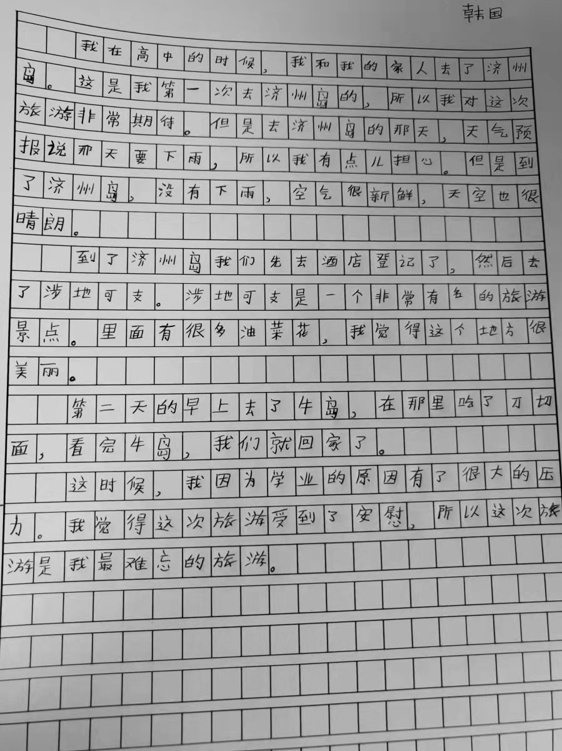 韩国
我在高中的时候，我和我的家人去了济州
岛。这是我第一次去济州岛的，所以我对这次
旅游非常期待。但是去济州岛的那天，天气预
报说那天要下雨，所以我有点儿担心。但是到
了济州岛，没有下雨，空气很新鲜，天空也很
晴朗。
到了济州岛我们先去酒店登记了，然后去
了涉地可支。涉地可支是一个非常有名的旅游
景点。里面有很多油菜花，我觉得这个地方很
美丽。
第二天的早上去了牛岛，在那里吃了刀切
面，看完牛岛，我们就回家了。
这时候，我因为学业的原因有了很大的压
力。我觉得这次旅游受到了安慰，所以这次旅
游是我最难忘的旅游。